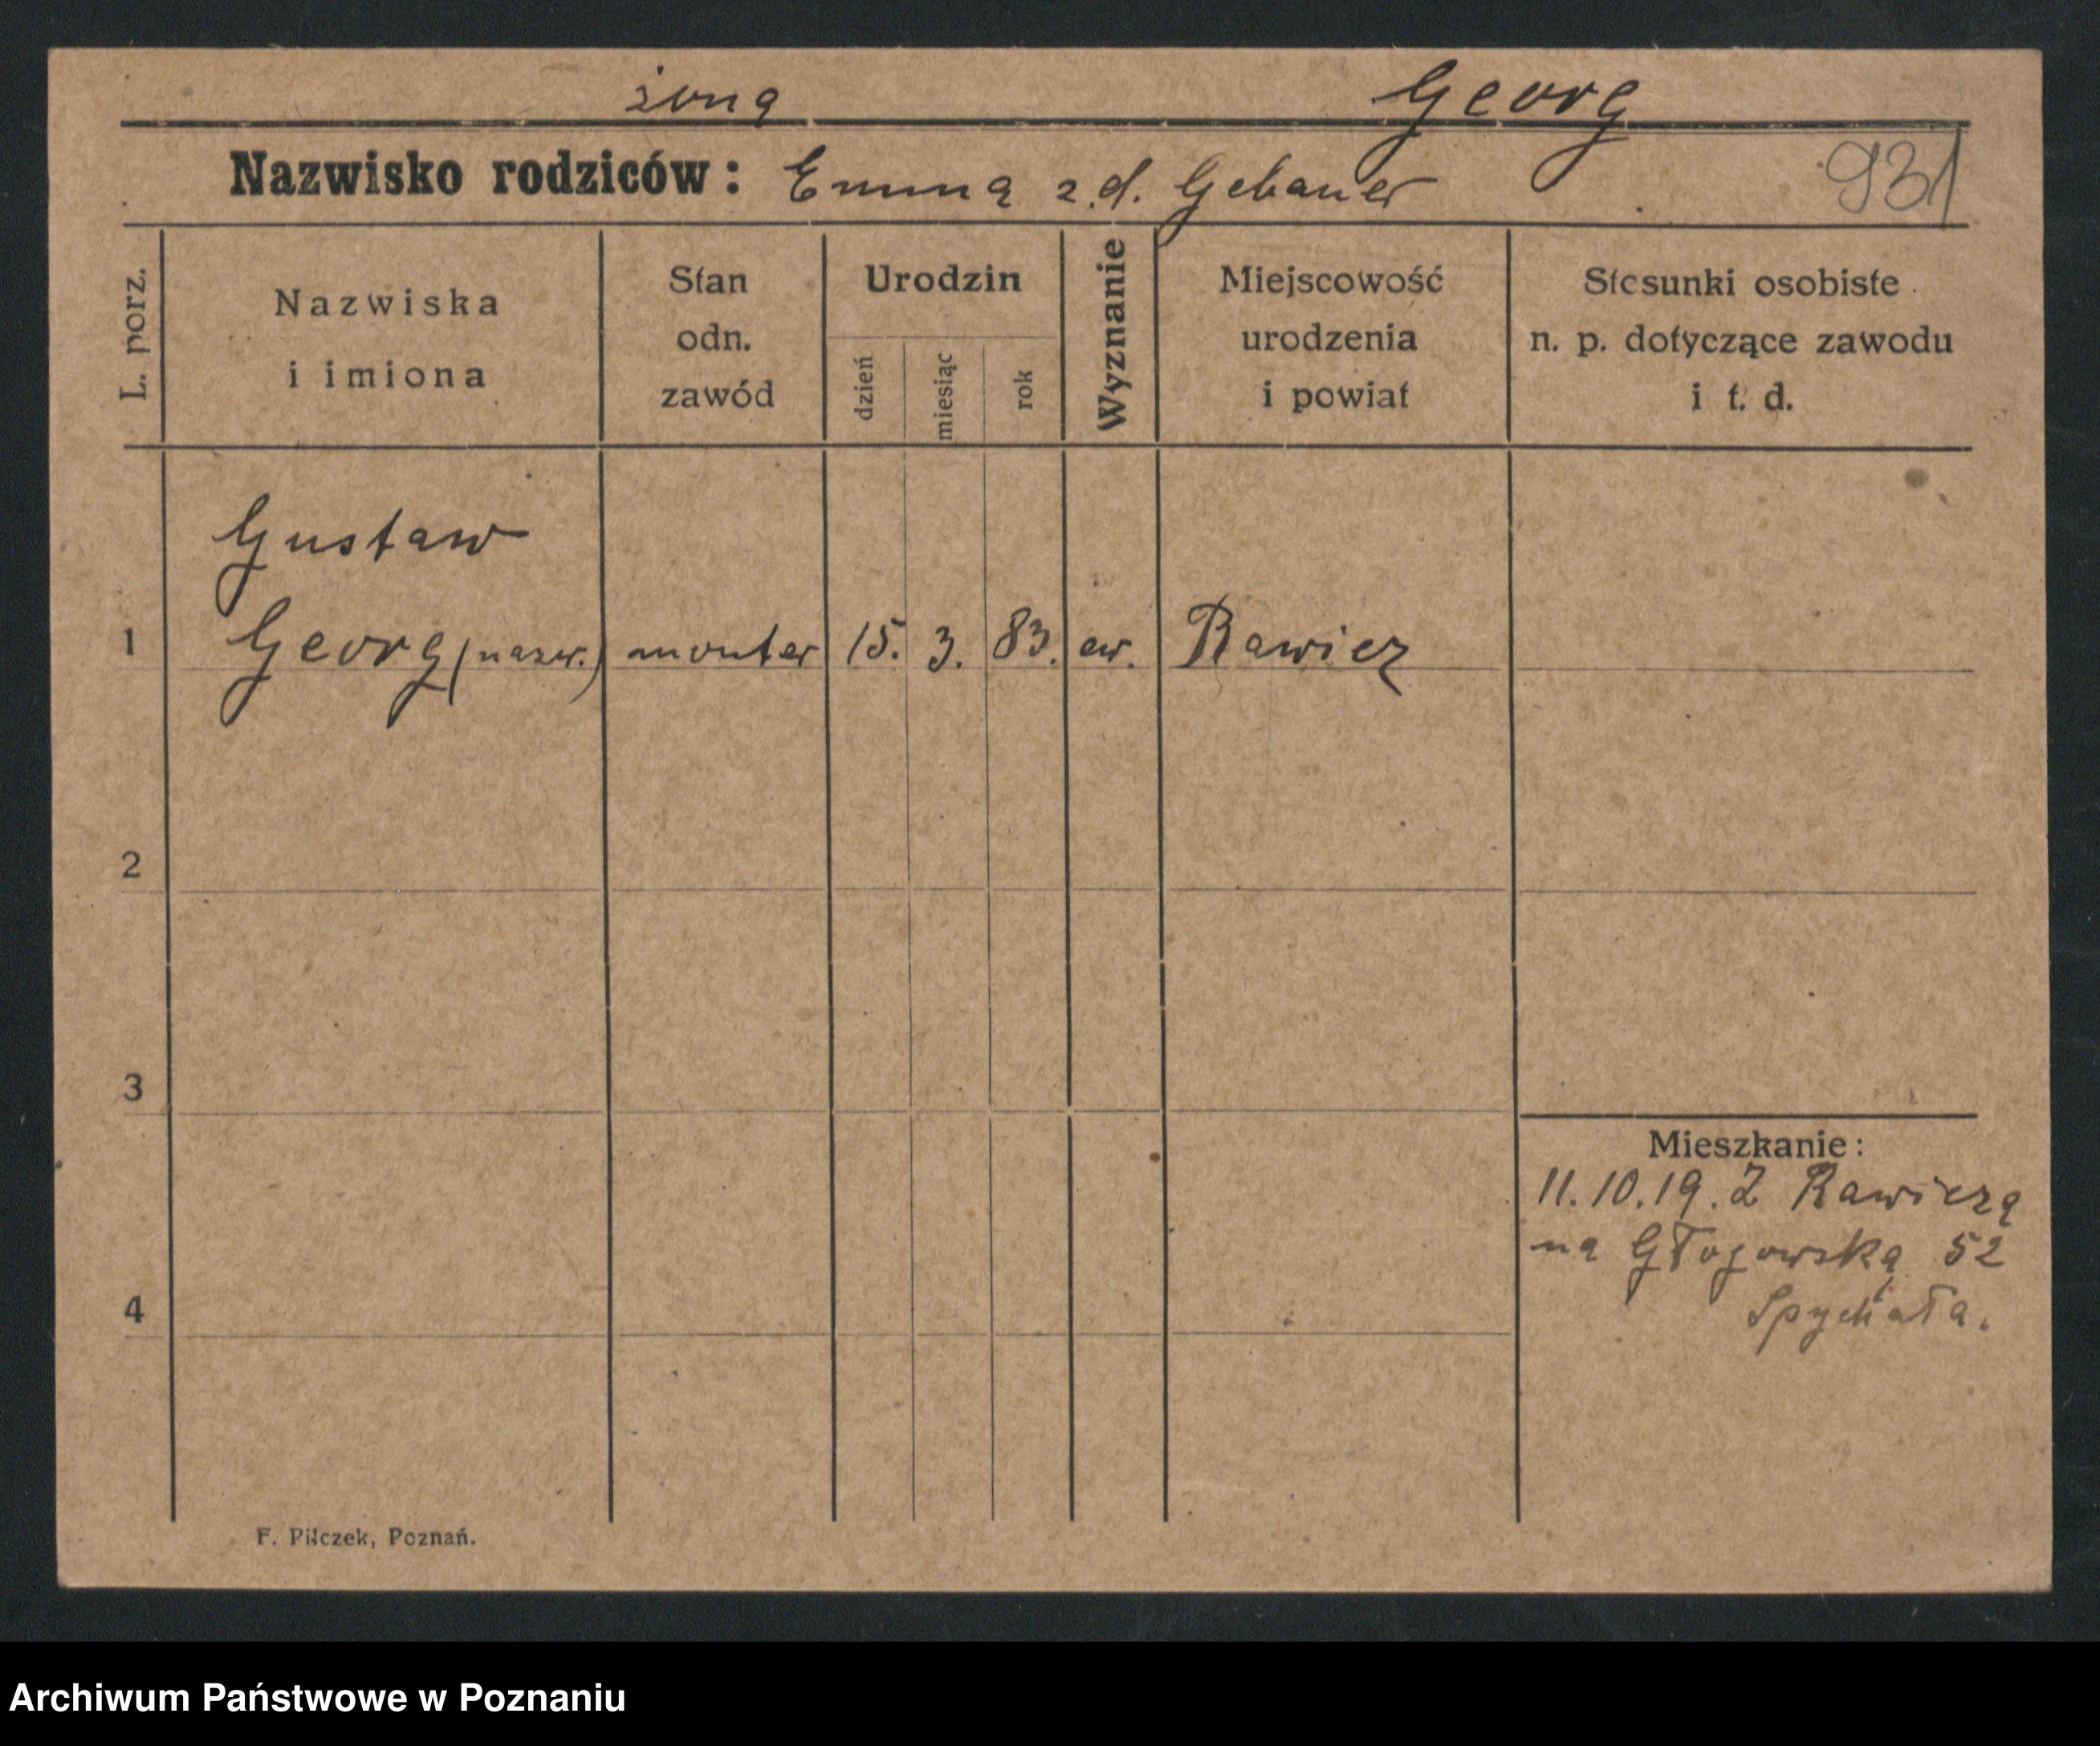 żona Georg
Nazwisko rodziców: Emma z.d. Gebauer 931
L. porz.
Nazwiska
i imiona
Stan
odn.
zawód
Urodzin
dzień
miesiąc
rok
Wyznanie
Miejscowość
urodzenia
i powiat
Stosunki osobiste
n. p. dotyczące zawodu
i t. d.
Gustaw
1 Georg (nazw.) monter 15. 3. 83. ew. Rawicz
2
3
4
Mieszkanie:
11.10.19. Z Rawicza
na Głogowską 52
Spychała.
F. Pilczek, Poznań.
Archiwum Państwowe w Poznaniu